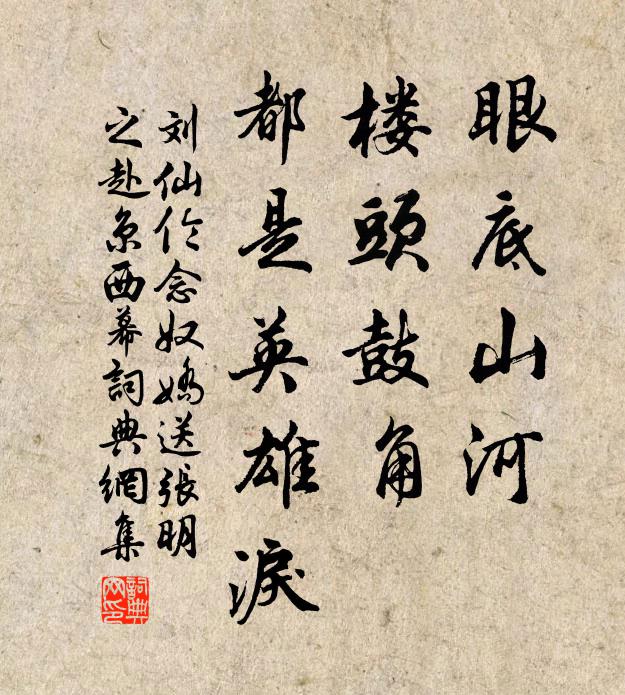 眼底山河
楼頭鼓角
都是英雄淚
刘仙伦念奴嬌送張明
之赴京西幕詞典網集
詞典网印